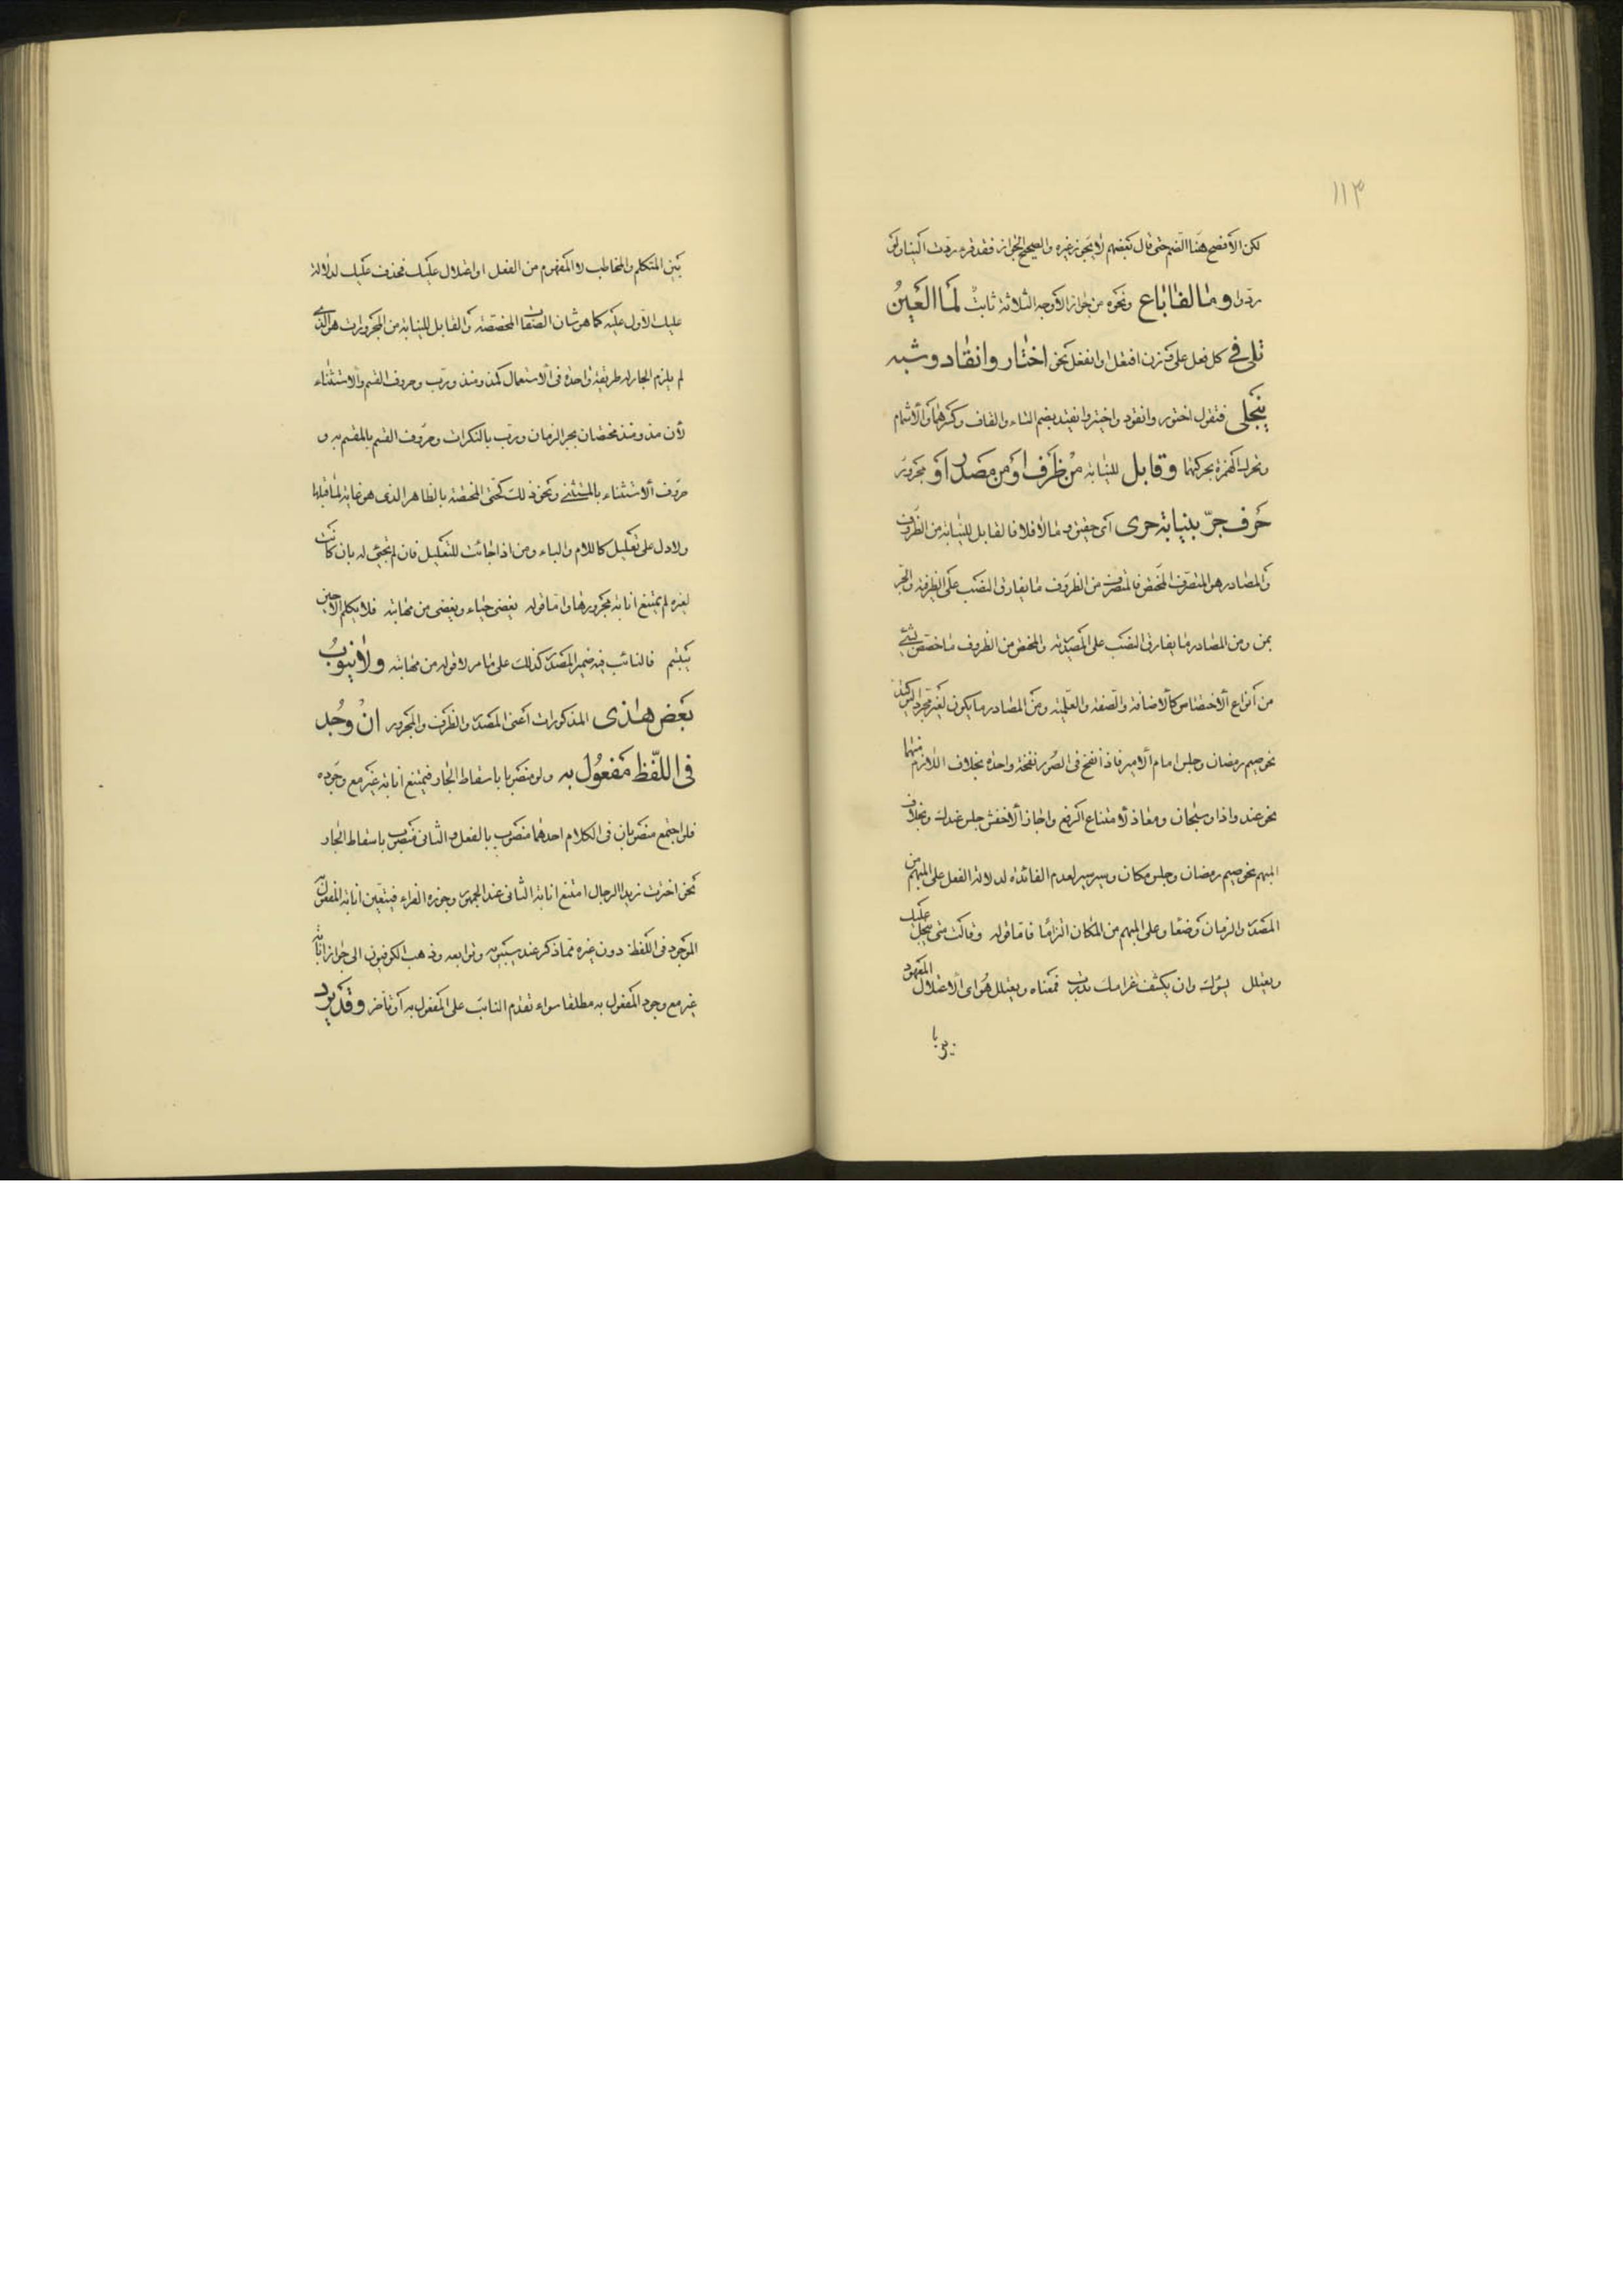 ١١٣
لكن الأفصح هنا الضم حتى قال بعضهم لا يجوز غيره والصحيح الجواز فقد قرء ردت الينا ولو
ردوا وما لفا باع ونحوه من جواز الأوجه الثلاثة ثابت لما العين
تلي في كل فعل على وزن افتعل او انفعل نحو اختار وانقاد وشبه
ينجلي فتقول اختور وانقود واختير وانقيد بضم التاء والقاف وكسرهما والأشمام
وتحرك الهمزة بحركتهما وقابل للنيابة من ظرف او من مصدر او مجرور
حرف جرّ بنيابة حرى أي حقيق وما لا فلا فالقابل للنيابة من الظروف
والمصادر هو المتصرف المختص فالمتصرف من الظروف ما يفارق النصب على الظرفية والجر
بمن ومن المصادر ما يفارق النصب على المصدرية والمختص من الظروف ما خصص بشيئ
من أنواع الأختصاص كالأضافة والصفة والعلمية ومن المصادر ما يكون لغير مجرد التوكيد
نحو صيم رمضان وجلس امام الأمير فاذا نفخ في الصور نفخة واحدة بخلاف اللازم منهما
نحو عند واذا وسبحان ومعاذ لأمتناع الرفع واجاز الأخفش جلس عندك وبخلاف
المبهم نحو صيم رمضان وجلس مكان وسير سير لعدم الفائدة لدلالة الفعل على المبهم من
المصدر والزمان وضعا وعلى المبهم من المكان التزاما فاما قوله وقالت متى يبخل عليك
ويعتلل يسؤك وان يكشف غرامك تدرب فمعناه ويعتلل هو اى الأعتلال المعهود
بين المتكلم والمخاطب لا المفهوم من الفعل او اعتلال عليك فحذف عليك لدلالة
عليك الأول عليه كما هو شان الصفات المخصصة والقابل للنيابة من المجرورات هو الذي
لم يلزم الجار له طريقة واحدة في الأستعمال كمذ ومنذ ورب وحروف القسم والأستثناء
لأن مذ ومنذ مختصان بجر الزمان ورب بالنكرات وحروف القسم بالمقسم به و
حروف الأستثناء بالمستثنى ونحو ذلك كحتى المختصة بالظاهر الذى هو غاية لما قبلها
ولا دل على تعليل كاللام والباء ومن اذا جائت للتعليل فان لم تجئ له بان كانت
لغيره لم يمتنع انابة مجرورها واما قوله يغضى حياء ويغضى من مهابته فلا يكلم الا حين
يبتسم فالنائب فيه ضمير المصدر كذلك على ما مر لا قوله من مهابته ولا ينوب
بعض هذى المذكورات أعنى المصدر والظرف والمجرور ان وجد
في اللفظ مفعول به ولو منصوبا باسقاط الجار فيمتنع انابة غيره مع وجوده
فلو اجتمع منصوبان في الكلام احدهما منصوب بالفعل والثاني منصوب باسقاط الجار
نحو اخترت زيدا الرجال امتنع انابة الثاني عند الجمهور وجوزه الفراء فيتعين انابة المفعول
الموجود في اللفظ دون غيره مما ذكر عند سيبويه ومن تابعه وذهب الكوفيون الى جواز انابة
غيره مع وجود المفعول به مطلقا سواء تقدم النائب على المفعول به أو تأخر وقد يرد